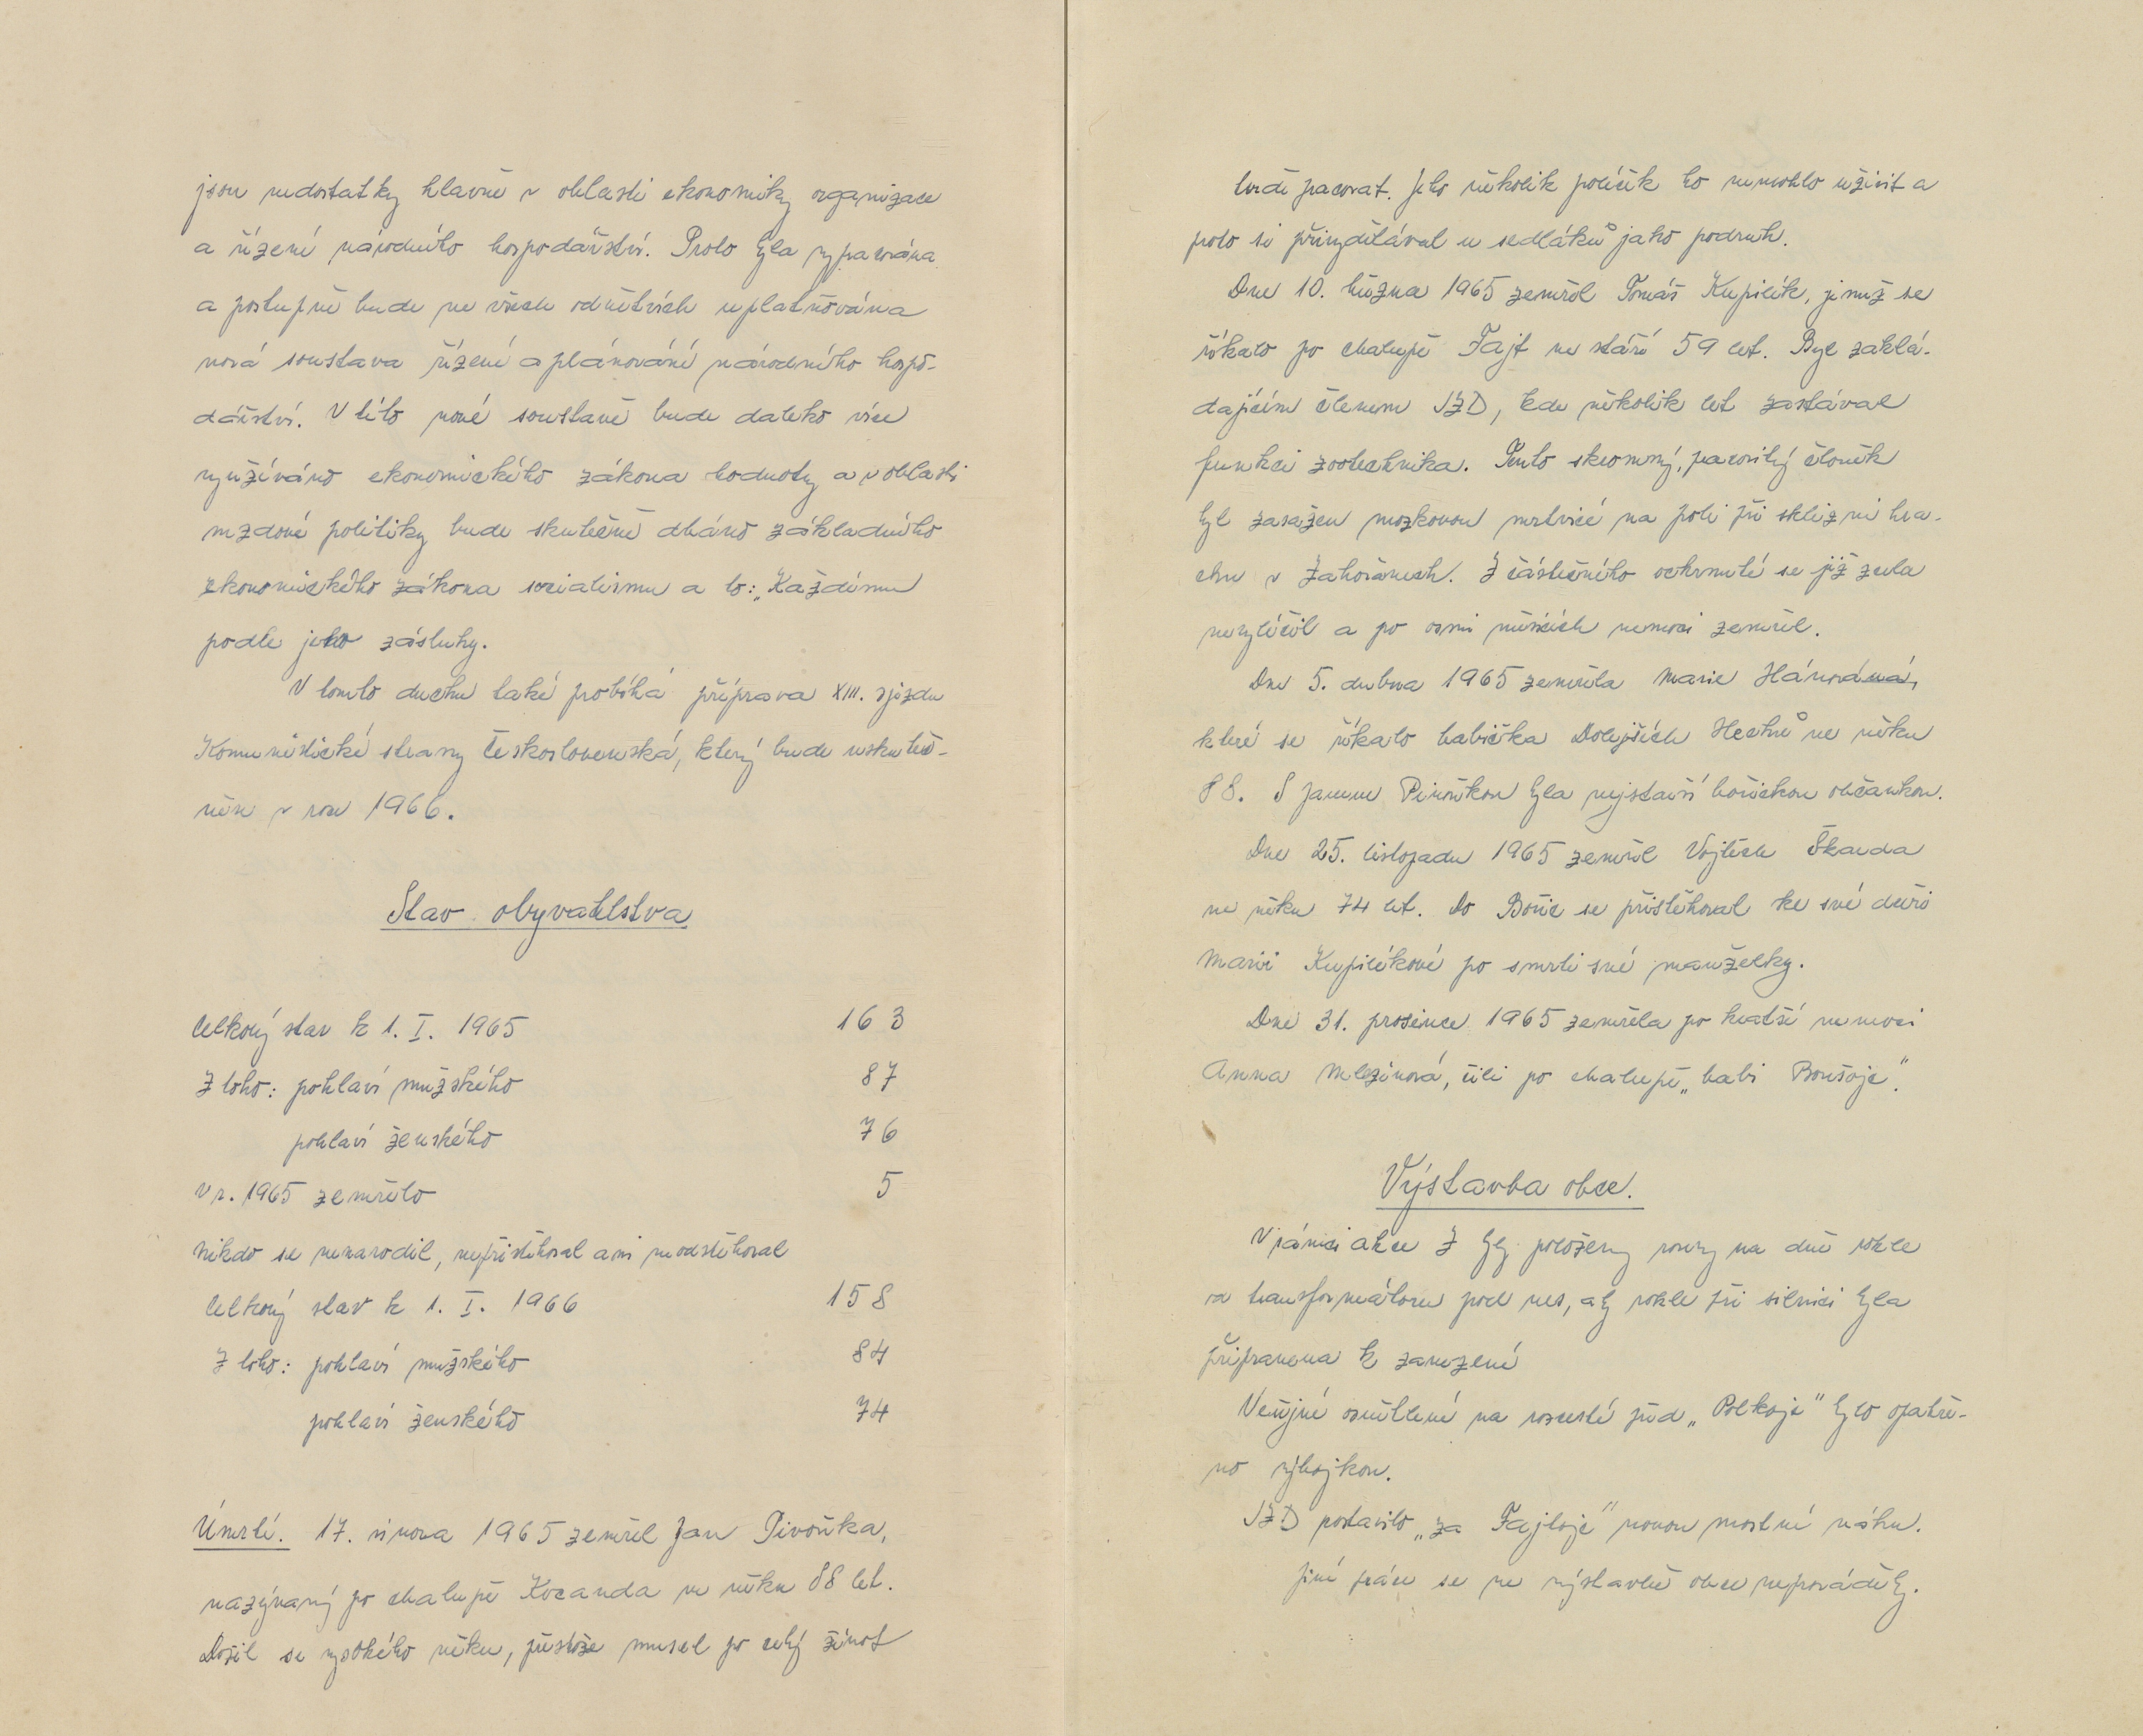 jsou nedostatky hlavně v oblasti ekonomiky organizace
a řízení národního hospodářství. Proto byla vypracována
a postupně bude ve všech odvětvích uplatňována
nová soustava řízení a plánování národního hospo-
dářství. V této nové soustavě bude daleko více
využíváno ekonomického zákona hodnoty a v oblasti
mzdové politiky bude skutečně dbáno základního
ekonomického zákona socialismu a to: „Každému
podle jeho zásluhy.
V tomto duchu také probíhá příprava XIII. sjezdu
Komunistické strany Československa, který bude uskuteč-
něn v roce 1966.
Stav obyvatelstva
Celkový stav k 1. I. 1965 163
Z toho: pohlaví mužského 87
pohlaví ženského 76
V r. 1965 zemřelo 5
Nikdo se nenarodil, nepřistěhoval ani neodstěhoval
Celkový stav k 1. I. 1966 158
Z toho: pohlaví mužského 84
pohlaví ženského 74
Úmrtí. 17. února 1965 zemřel Jan Pivoňka,
nazývaný po chalupě Kocanda ve věku 88 let.
Dožil se vysokého věku, přestože musel po celý život
tvrdě pracovat. Jeho několik políček ho nemohlo uživit a
proto si přivydělával u sedláků jako podruh.
Dne 10. března 1965 zemřel Tomáš Kupilík, jemuž se
říkalo po chalupě Fajt ve stáří 59 let. Byl zaklá-
dajícím členem JZD, kde několik let zastával
funkci zootechnika. Tento skromný, pracovitý člověk
byl zasažen mozkovou mrtvicí na poli při sklizni hra-
chu v Zahořanech. Z částečného ochrnutí se již zcela
nevyléčil a po osmi měsících nemoci zemřel.
Dne 5. dubna 1965 zemřela Marie Hánová,
které se říkalo babička Dolejších Hechů ve věku
88. S Janem Pivoňkou byla nejstarší bořickou občankou.
Dne 25. listopadu 1965 zemřel Vojtěch Škarda
ve věku 74 let. Do Bořic se přistěhoval ke své dceři
Marii Kupilíkové po smrti své manželky.
Dne 31. prosince 1965 zemřela po kratší nemoci
Anna Mlezivová, čili po chalupě „babi Boušoje".
Výstavba obce.
V rámci akce Z byly položeny roury na dně rokle
od transformátoru pod ves, aby rokle při silnici byla
připravena k zavezení
Veřejné osvětlení na rozcestí před „Polkoje" bylo opatře-
no výbojkou.
JZD postavilo „za Fajtoje" novou mostní váhu.
Jiné práce se ve výstavbě obce neprováděly.